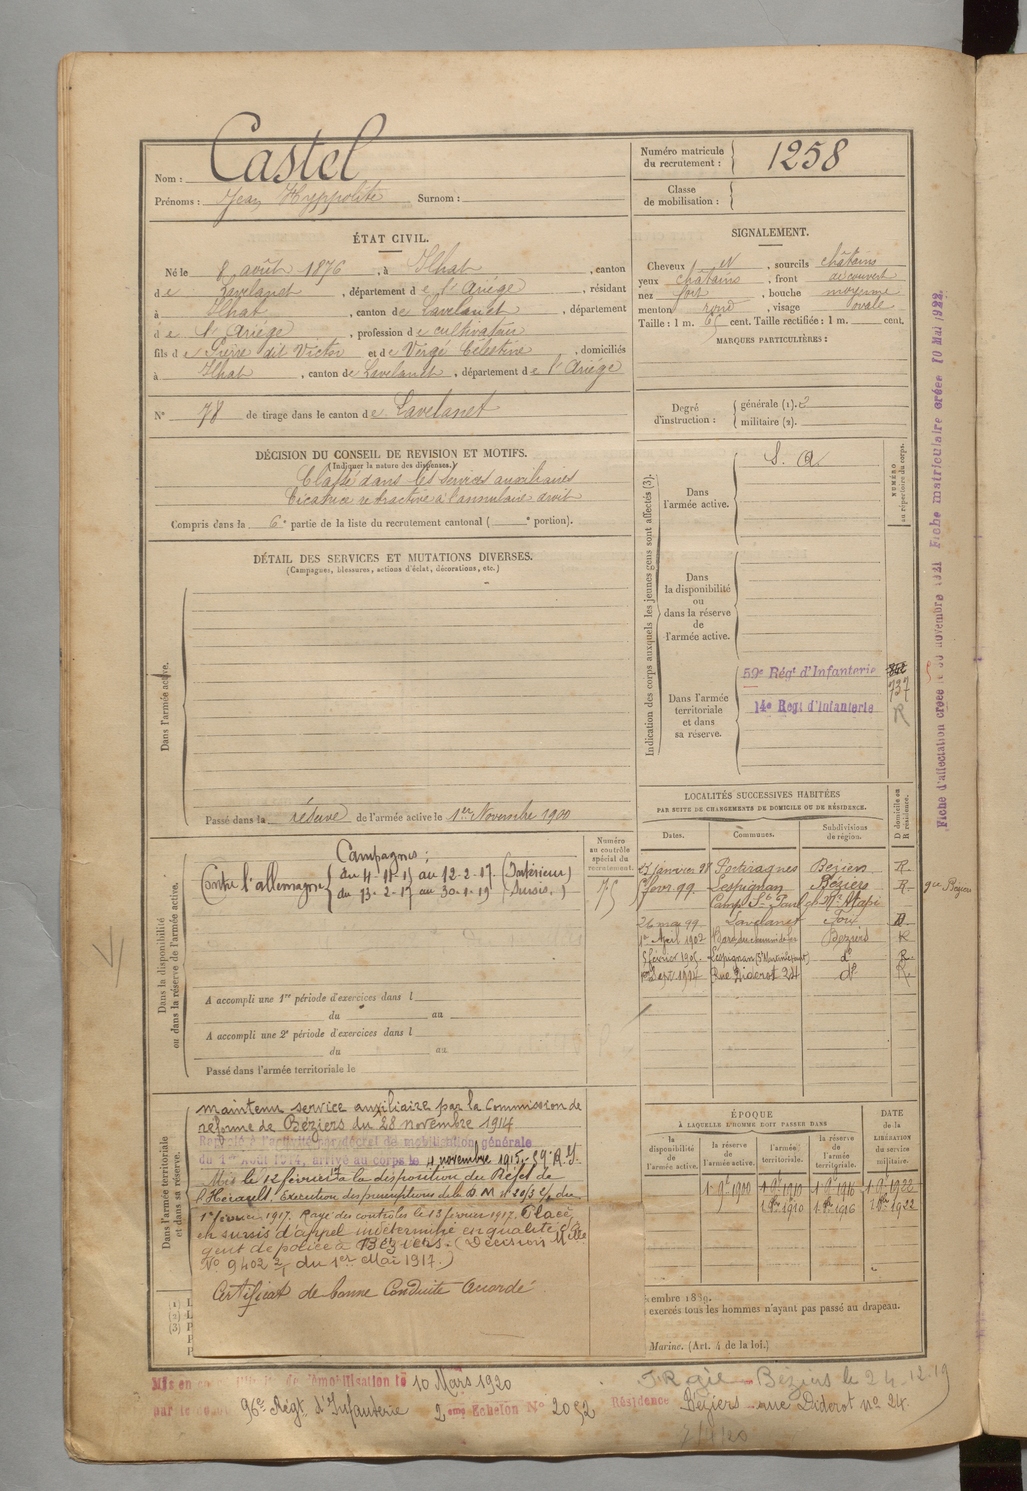 Nom : Castel
Prénoms : Jean Hyppolite Surnom :
Numéro matricule du recrutement : 1258
Classe de mobilisation :
ÉTAT CIVIL.
Né le 8 août 1876, à Ilhat, canton
de Lavelanet, département de l'Ariège, résidant
à Ilhat, canton de Lavelanet, département
de l'Ariège, profession de cultivateur
fils de Pierre dit Victor et de Vergé Célestine, domiciliés
à Ilhat, canton de Lavelanet, département de l'Ariège
N° 78 de tirage dans le canton de Lavelanet
SIGNALEMENT.
Cheveux N, sourcils châtains
yeux châtains, front découvert
nez fort, bouche moyenne
menton rond, visage ovale
Taille : 1 m. 65 cent. Taille rectifiée : 1 m. cent.
MARQUES PARTICULIÈRES :
Degré d'instruction : générale (1). 2
militaire (2).
DÉCISION DU CONSEIL DE REVISION ET MOTIFS.
(Indiquer la nature des dispenses.)
Classé dans les services auxiliaires
Cicatrice rétractive à l'annulaire droit
Compris dans la 6e partie de la liste du recrutement cantonal ( e portion).
DÉTAIL DES SERVICES ET MUTATIONS DIVERSES.
(Campagnes, blessures, actions d'éclat, décorations, etc.)
Dans l'armée active.
Passé dans la réserve de l'armée active le 1er Novembre 1900
Indication des corps auxquels les jeunes gens sont affectés (3).
NUMÉRO au répertoire du corps.
Dans l'armée active.
S. A.
Dans la disponibilité ou dans la réserve de l'armée active.
Dans l'armée territoriale et dans sa réserve.
59e Régt d'Infanterie
737
14e Régt d'Infanterie
R
Dans la disponibilité ou dans la réserve de l'armée active.
Campagnes :
Contre l'allemagne du 4-11-15 au 12-2-17 (Intérieur)
du 13-2-17 au 30-1-19 (Sursis.)
Numéro au contrôle spécial du recrutement.
75
A accompli une 1re période d'exercices dans l
du au
A accompli une 2e période d'exercices dans l
du au
Passé dans l'armée territoriale le
LOCALITÉS SUCCESSIVES HABITÉES
PAR SUITE DE CHANGEMENTS DE DOMICILE OU DE RÉSIDENCE.
D domicile ou R résidence.
Dates. Communes. Subdivisions de région.
janvier 98 Portiragnes Béziers R
févr 99 Lespignan Béziers R
Camp St Paul
26 mai 99 Lavelanet Foix D
1er Avril 1902 Béziers R
février 1905 Lespignan do R
Sept 1914 Rue Diderot 24 do R
Dans l'armée territoriale et dans sa réserve.
maintenu service auxiliaire par la Commission de
réforme de Béziers du 28 novembre 1914
Rappelé à l'activité par décret de mobilisation générale
du 1er Août 1914, arrivé au corps le 4 novembre 1915. 59e R.I.
Mis le 12 février 17 à la disposition du Préfet de
l'Hérault. Exécution des prescriptions de la D.M. n° 2013 du
1er février 1917. Rayé des contrôles le 13 février 1917. Placé
en sursis d'appel indéterminé en qualité d'a-
gent de police à Béziers. (Décision Mille
N° 9402 du 1er Mai 1917.)
Certificat de bonne Conduite Accordé
ÉPOQUE
À LAQUELLE L'HOMME DOIT PASSER DANS
la disponibilité de l'armée active.
la réserve de l'armée active.
l'armée territoriale.
la réserve de l'armée territoriale.
DATE de la LIBÉRATION du service militaire.
1 9bre 1900 1 9bre 1910 1 9bre 1916 1 9bre 1922
1 9bre 1910 1 9bre 1916 1 9bre 1922
(1)
(2)
(3)
embre 1889.
exercés tous les hommes n'ayant pas passé au drapeau.
Marine. (Art. 4 de la loi.)
démobilisation le 10 Mars 1920
96e Régt d'Infanterie 2eme Echelon N° 2052
Béziers le 24-12-19
Résidence Béziers rue Diderot n° 24
Fiche d'affectation créée le 30 novembre 1921 Fiche matriculaire créée 10 Mai 1922.